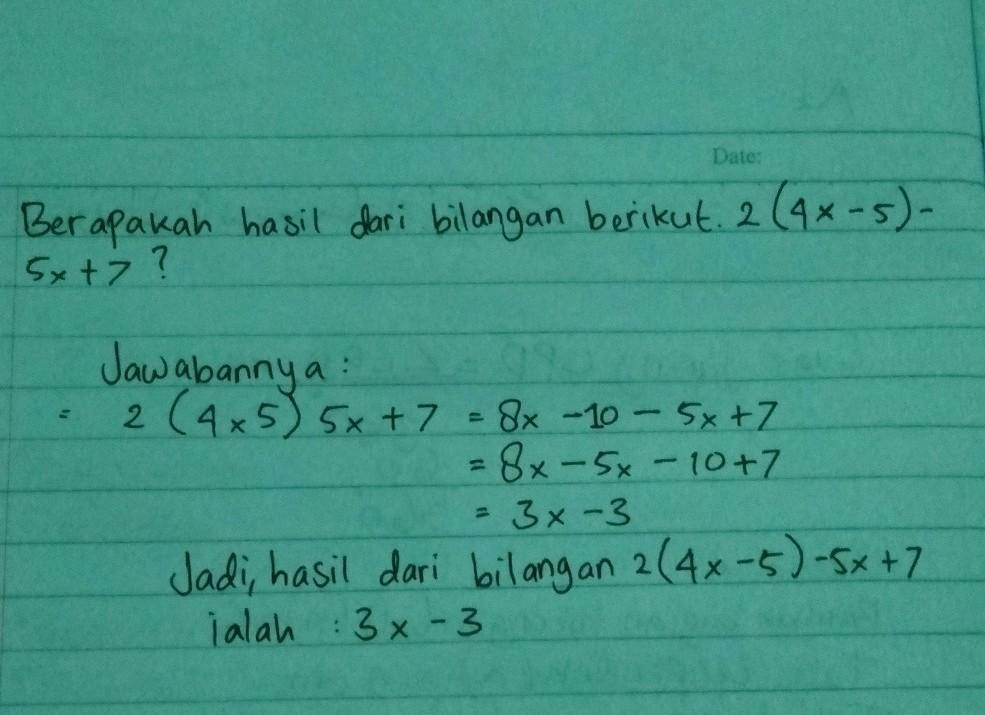 Date:
Berapakah hasil dari bilangan berikut. 2(4x-5)-
5x+7?
Jawabannya:
= 2 (4x5) 5x+7 = 8x -10 - 5x+7
= 8x - 5x - 10+7
= 3x - 3
Jadi, hasil dari bilangan 2(4x-5)-5x+7
ialah : 3x - 3